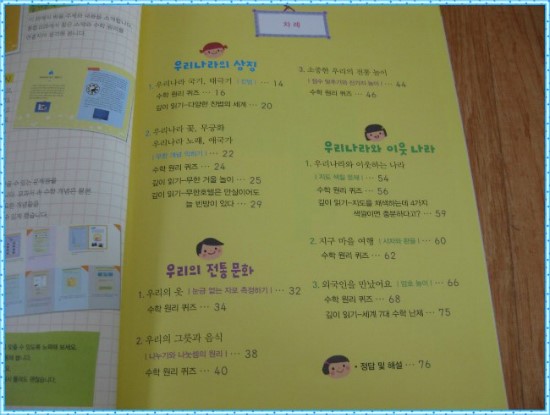 차례
우리나라의 상징
1. 우리나라 국기, 태극기 [진법] ··· 14
수학 원리 퀴즈 ··· 16
깊이 읽기-다양한 진법의 세계 ··· 20
2. 우리나라 꽃, 무궁화
우리나라 노래, 애국가
[무한 개념 익히기] ··· 22
수학 원리 퀴즈 ··· 24
깊이 읽기-무한 거울 놀이 ··· 25
깊이 읽기-무한호텔은 만실이어도
늘 빈방이 있다 ··· 29
우리의 전통 문화
1. 우리의 옷 [눈금 없는 자로 측정하기] ··· 32
수학 원리 퀴즈 ··· 34
2. 우리의 그릇과 음식
[나누기와 나눗셈의 원리] ··· 38
수학 원리 퀴즈 ··· 40
3. 소중한 우리의 전통 놀이
··· 44
수학 원리 퀴즈 ··· 46
우리나라와 이웃 나라
1. 우리나라와 이웃하는 나라
[지도 색칠 문제] ··· 54
수학 원리 퀴즈 ··· 56
깊이 읽기-지도를 채색하는데 4가지
색깔이면 충분하다고? ··· 59
2. 지구 마을 여행 [시차와 환율] ··· 60
수학 원리 퀴즈 ··· 62
3. 외국인을 만났어요 [암호 놀이] ··· 66
수학 원리 퀴즈 ··· 68
깊이 읽기-세계 7대 수학 난제 ··· 75
· 정답 및 해설 ··· 76